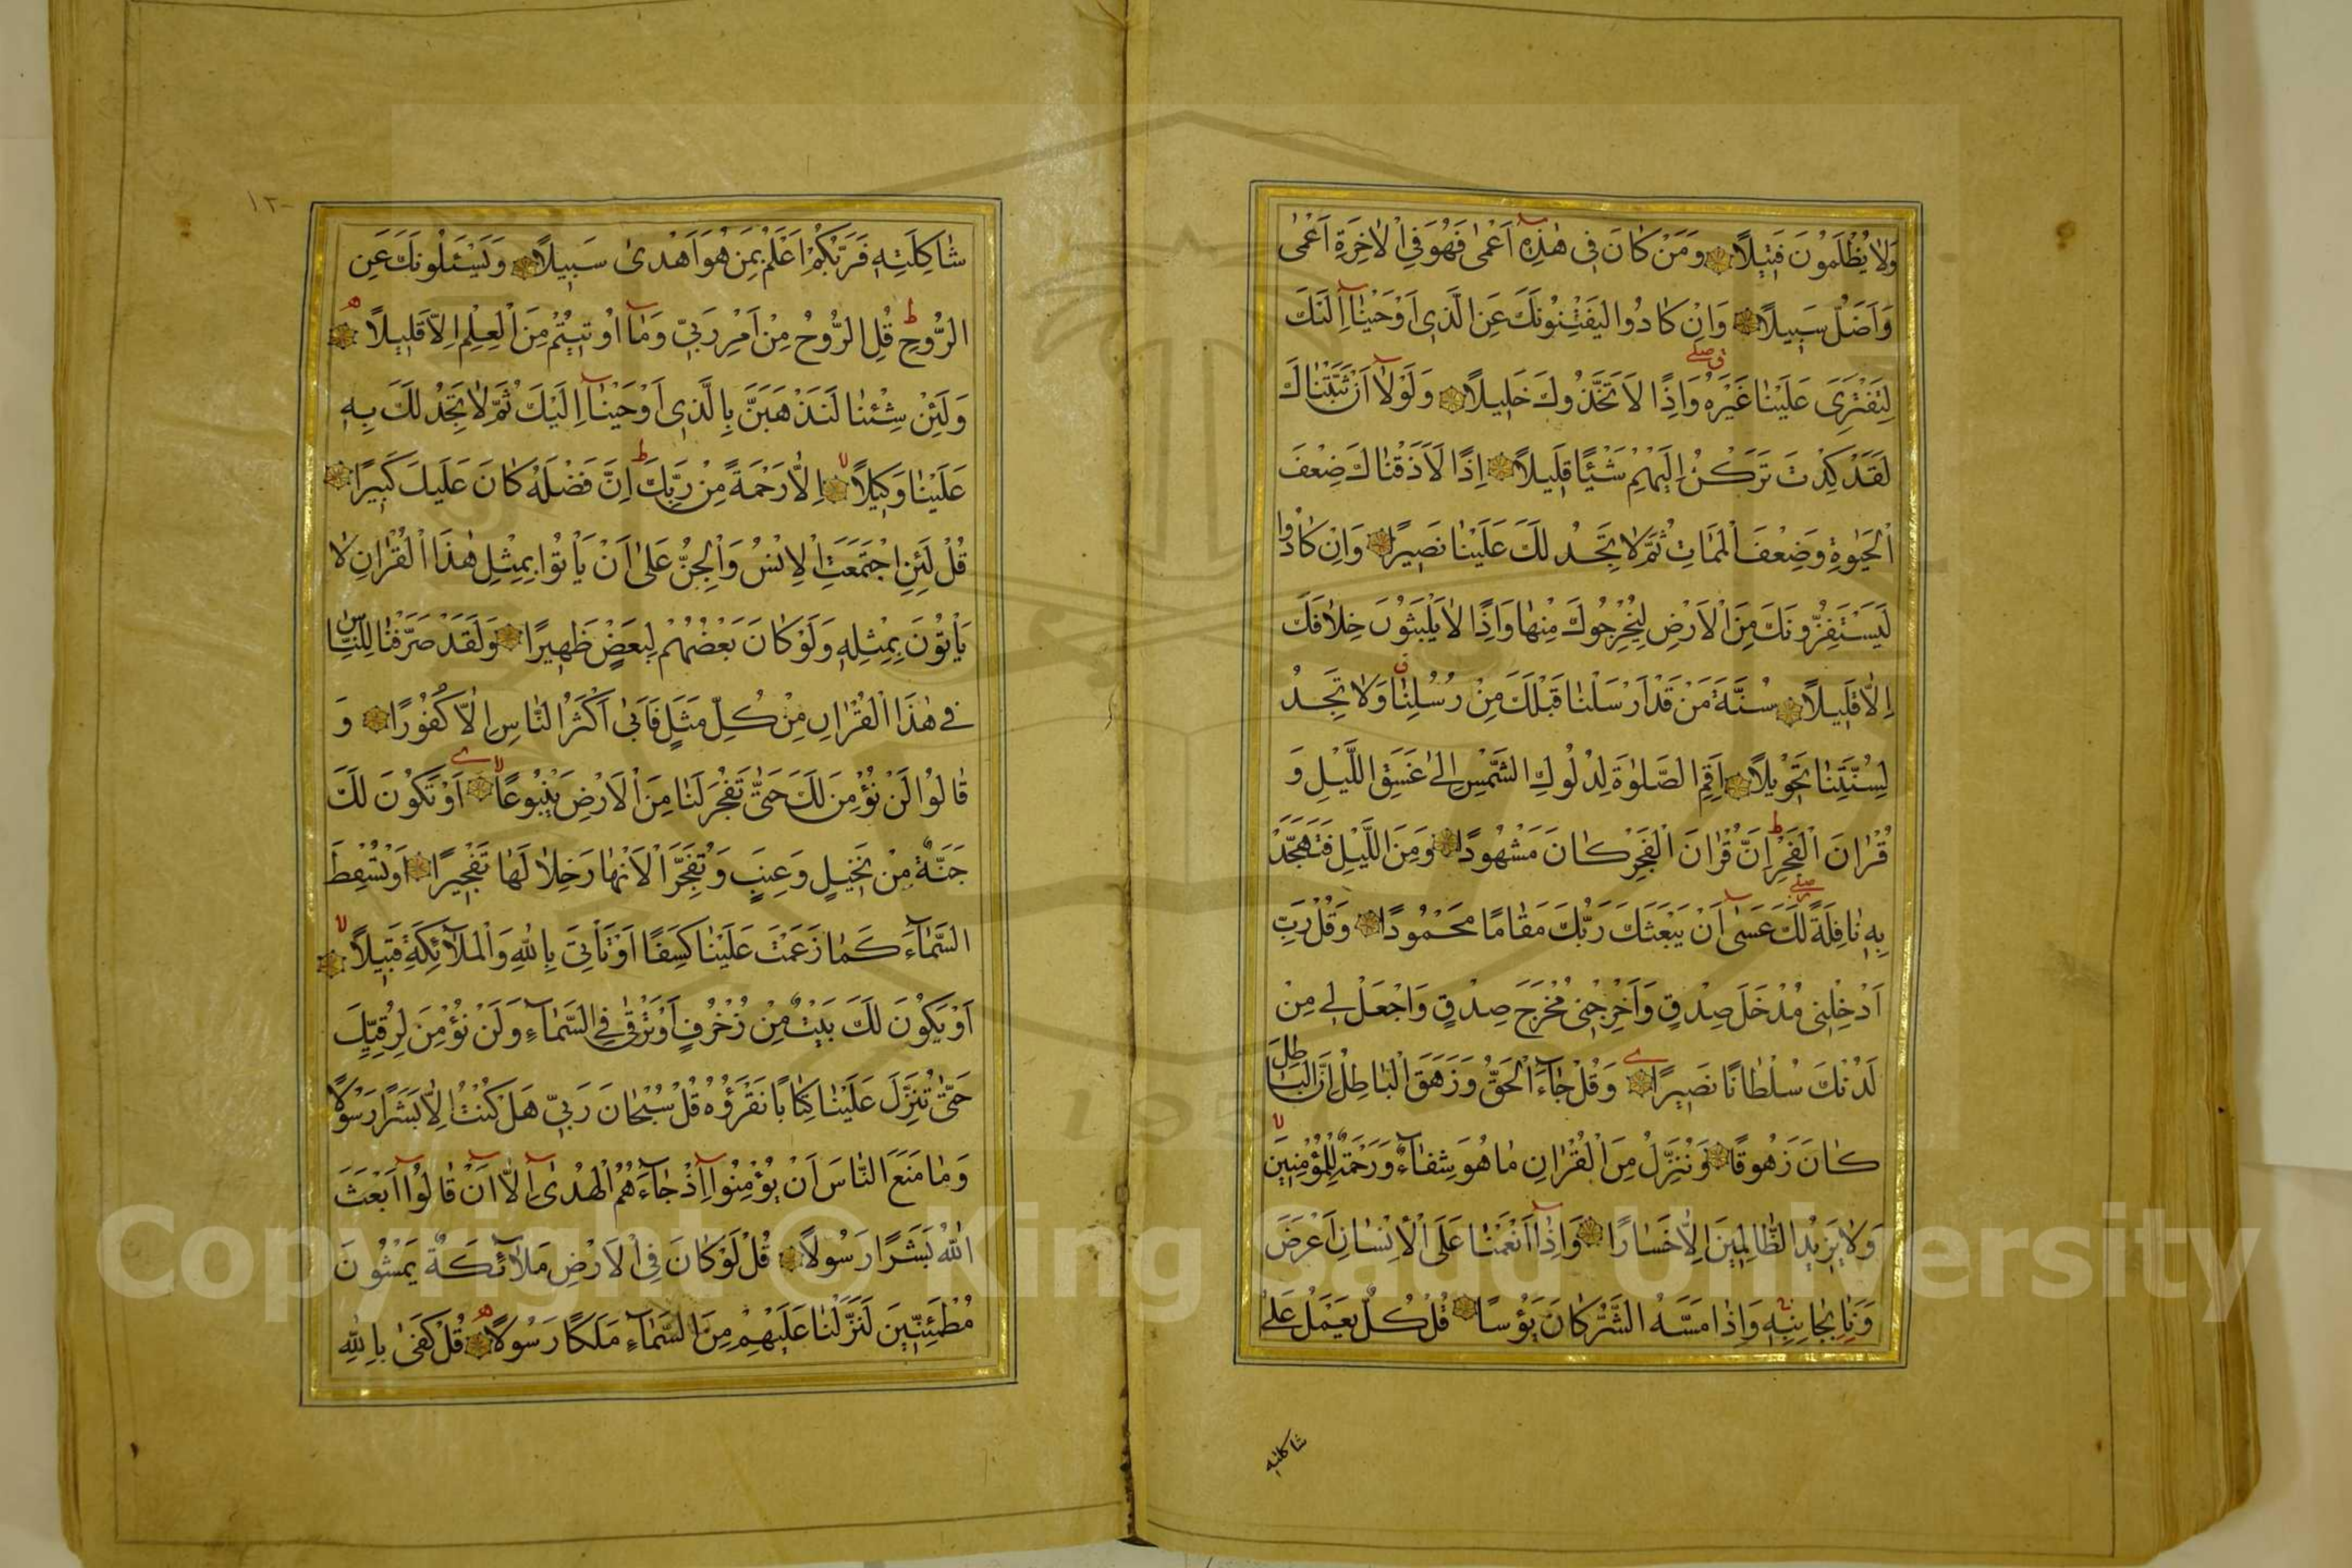 وَلَا يُظْلَمُونَ فَتِيلًا وَمَنْ كَانَ فِي هٰذِهٖ اَعْمٰى فَهُوَ فِي الْاٰخِرَةِ اَعْمٰى
وَاَضَلُّ سَبِيلًا وَاِنْ كَادُوا لَيَفْتِنُونَكَ عَنِ الَّذِي اَوْحَيْنَا اِلَيْكَ
لِتَفْتَرِيَ عَلَيْنَا غَيْرَهُ وَاِذًا لَاتَّخَذُوكَ خَلِيلًا وَلَوْلَا اَنْ ثَبَّتْنَاكَ
لَقَدْ كِدْتَ تَرْكَنُ اِلَيْهِمْ شَيْئًا قَلِيلًا اِذًا لَاَذَقْنَاكَ ضِعْفَ
الْحَيٰوةِ وَضِعْفَ الْمَمَاتِ ثُمَّ لَا تَجِدُ لَكَ عَلَيْنَا نَصِيرًا وَاِنْ كَادُوا
لَيَسْتَفِزُّونَكَ مِنَ الْاَرْضِ لِيُخْرِجُوكَ مِنْهَا وَاِذًا لَا يَلْبَثُونَ خِلَافَكَ
اِلَّا قَلِيلًا سُنَّةَ مَنْ قَدْ اَرْسَلْنَا قَبْلَكَ مِنْ رُسُلِنَا وَلَا تَجِدُ
لِسُنَّتِنَا تَحْوِيلًا اَقِمِ الصَّلٰوةَ لِدُلُوكِ الشَّمْسِ اِلٰى غَسَقِ اللَّيْلِ وَ
قُرْاٰنَ الْفَجْرِ اِنَّ قُرْاٰنَ الْفَجْرِ كَانَ مَشْهُودًا وَمِنَ اللَّيْلِ فَتَهَجَّدْ
بِهٖ نَافِلَةً لَكَ عَسٰى اَنْ يَبْعَثَكَ رَبُّكَ مَقَامًا مَحْمُودًا وَقُلْ رَبِّ
اَدْخِلْنِي مُدْخَلَ صِدْقٍ وَاَخْرِجْنِي مُخْرَجَ صِدْقٍ وَاجْعَلْ لِي مِنْ
لَدُنْكَ سُلْطَانًا نَصِيرًا وَقُلْ جَاءَ الْحَقُّ وَزَهَقَ الْبَاطِلُ اِنَّ الْبَاطِلَ
كَانَ زَهُوقًا وَنُنَزِّلُ مِنَ الْقُرْاٰنِ مَا هُوَ شِفَاءٌ وَرَحْمَةٌ لِلْمُؤْمِنِينَ
وَلَا يَزِيدُ الظَّالِمِينَ اِلَّا خَسَارًا وَاِذَا اَنْعَمْنَا عَلَى الْاِنْسَانِ اَعْرَضَ
وَنَاٰ بِجَانِبِهٖ وَاِذَا مَسَّهُ الشَّرُّ كَانَ يَؤُسًا قُلْ كُلٌّ يَعْمَلُ عَلٰى
شاكلته
١٢٠
شَاكِلَتِهٖ فَرَبُّكُمْ اَعْلَمُ بِمَنْ هُوَ اَهْدٰى سَبِيلًا وَيَسْـَٔلُونَكَ عَنِ
الرُّوحِ قُلِ الرُّوحُ مِنْ اَمْرِ رَبِّي وَمَا اُوتِيتُمْ مِنَ الْعِلْمِ اِلَّا قَلِيلًا
وَلَئِنْ شِئْنَا لَنَذْهَبَنَّ بِالَّذِي اَوْحَيْنَا اِلَيْكَ ثُمَّ لَا تَجِدُ لَكَ بِهٖ
عَلَيْنَا وَكِيلًا اِلَّا رَحْمَةً مِنْ رَبِّكَ اِنَّ فَضْلَهُ كَانَ عَلَيْكَ كَبِيرًا
قُلْ لَئِنِ اجْتَمَعَتِ الْاِنْسُ وَالْجِنُّ عَلٰى اَنْ يَأْتُوا بِمِثْلِ هٰذَا الْقُرْاٰنِ لَا
يَأْتُونَ بِمِثْلِهٖ وَلَوْ كَانَ بَعْضُهُمْ لِبَعْضٍ ظَهِيرًا وَلَقَدْ صَرَّفْنَا لِلنَّاسِ
فِي هٰذَا الْقُرْاٰنِ مِنْ كُلِّ مَثَلٍ فَاَبٰى اَكْثَرُ النَّاسِ اِلَّا كُفُورًا وَ
قَالُوا لَنْ نُؤْمِنَ لَكَ حَتّٰى تَفْجُرَ لَنَا مِنَ الْاَرْضِ يَنْبُوعًا اَوْ تَكُونَ لَكَ
جَنَّةٌ مِنْ نَخِيلٍ وَعِنَبٍ وَتُفَجِّرَ الْاَنْهَارَ خِلَالَهَا تَفْجِيرًا اَوْ تُسْقِطَ
السَّمَاءَ كَمَا زَعَمْتَ عَلَيْنَا كِسَفًا اَوْ تَأْتِيَ بِاللّٰهِ وَالْمَلَائِكَةِ قَبِيلًا
اَوْ يَكُونَ لَكَ بَيْتٌ مِنْ زُخْرُفٍ اَوْ تَرْقٰى فِي السَّمَاءِ وَلَنْ نُؤْمِنَ لِرُقِيِّكَ
حَتّٰى تُنَزِّلَ عَلَيْنَا كِتَابًا نَقْرَؤُهُ قُلْ سُبْحَانَ رَبِّي هَلْ كُنْتُ اِلَّا بَشَرًا رَسُولًا
وَمَا مَنَعَ النَّاسَ اَنْ يُؤْمِنُوا اِذْ جَاءَهُمُ الْهُدٰى اِلَّا اَنْ قَالُوا اَبَعَثَ
اللّٰهُ بَشَرًا رَسُولًا قُلْ لَوْ كَانَ فِي الْاَرْضِ مَلَائِكَةٌ يَمْشُونَ
مُطْمَئِنِّينَ لَنَزَّلْنَا عَلَيْهِمْ مِنَ السَّمَاءِ مَلَكًا رَسُولًا قُلْ كَفٰى بِاللّٰهِ
Copyright © King Saud University
1957